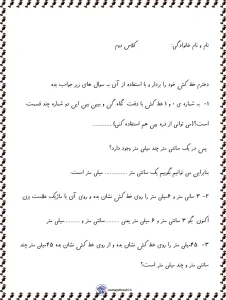 نام و نام خانوادگی: کلاس دوم
دخترم خط کش خود را بردار و با استفاده از آن به سوال های زیر جواب بده
۱- به شماره ی ۰ و ۱ خط کش با دقت نگاه کن و ببین بین این دو شماره چند قسمت
است؟(می توانی از ذره بین هم استفاده کنی)............
پس در یک سانتی متر چند میلی متر وجود دارد؟
بنابراین می توانیم بگوییم یک سانتی متر ............ میلی متر است.
۲- ۳ سانتی متر و ۶میلی متر را روی خط کش نشان بده و روی آن با ماژیک علامت بزن
اکنون بگو ۳ سانتی متر و ۶ میلی متر یعنی ........سانتی متر و ........میلی متر
۳- ۴۵میلی متر را روی خط کش نشان بده و از روی خط کش نشان بده ۴۵میلی متر چند
سانتی متر و چند میلی متر است؟